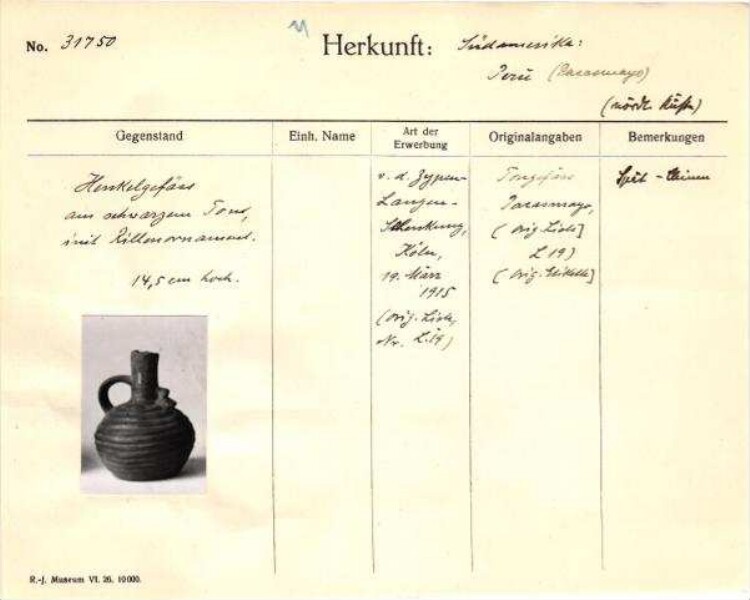 No. 31750
Herkunft: Südamerika:
Perú (Pacasmayo)
(nördl. Küste)
Gegenstand
Einh. Name
Art der
Erwerbung
Originalangaben
Bemerkungen
Henkelgefäss
aus schwarzem Ton,
mit Rillenornament.
14,5 cm hoch.
v. d. Zypen-
Langen-
Schenkung,
Köln,
19. März
1915
(orig. Liste,
Nr. L.19)
Tongefäss
Pacasmayo,
(Orig. Liste]
L 19)
(Orig. Etikette]
Spät - Chimu
R.-J. Museum VI. 26. 10000.